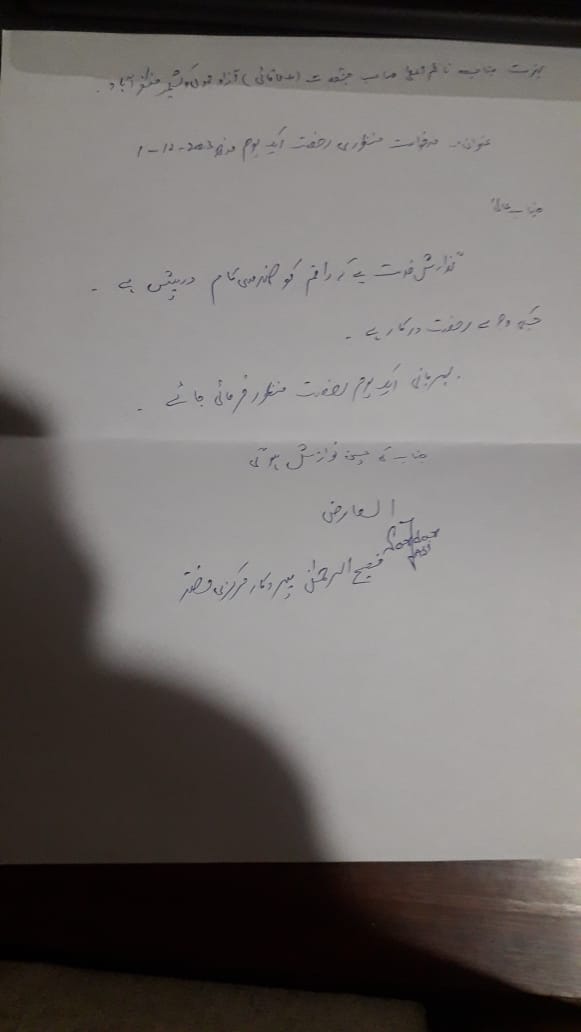 بخدمت جناب ناظم اعلیٰ صاحب (ملاقائی) آزاد جموں و کشمیر مظفر آباد۔
عنوان:۔ درخواست منظوری رخصت ایک یوم مورخہ 2023-12-1
جناب عالیٰ
گزارش خدمت ہے کہ راقم کو ضروری کام درپیش ہے ۔
جسکی وجہ سے رخصت درکار ہے ۔
بمہربانی ایک یوم رخصت منظور فرمائی جائے ۔
جناب کی عین نوازش ہو گی
العارض
فصیح الرحمٰن مرکزی دفتر